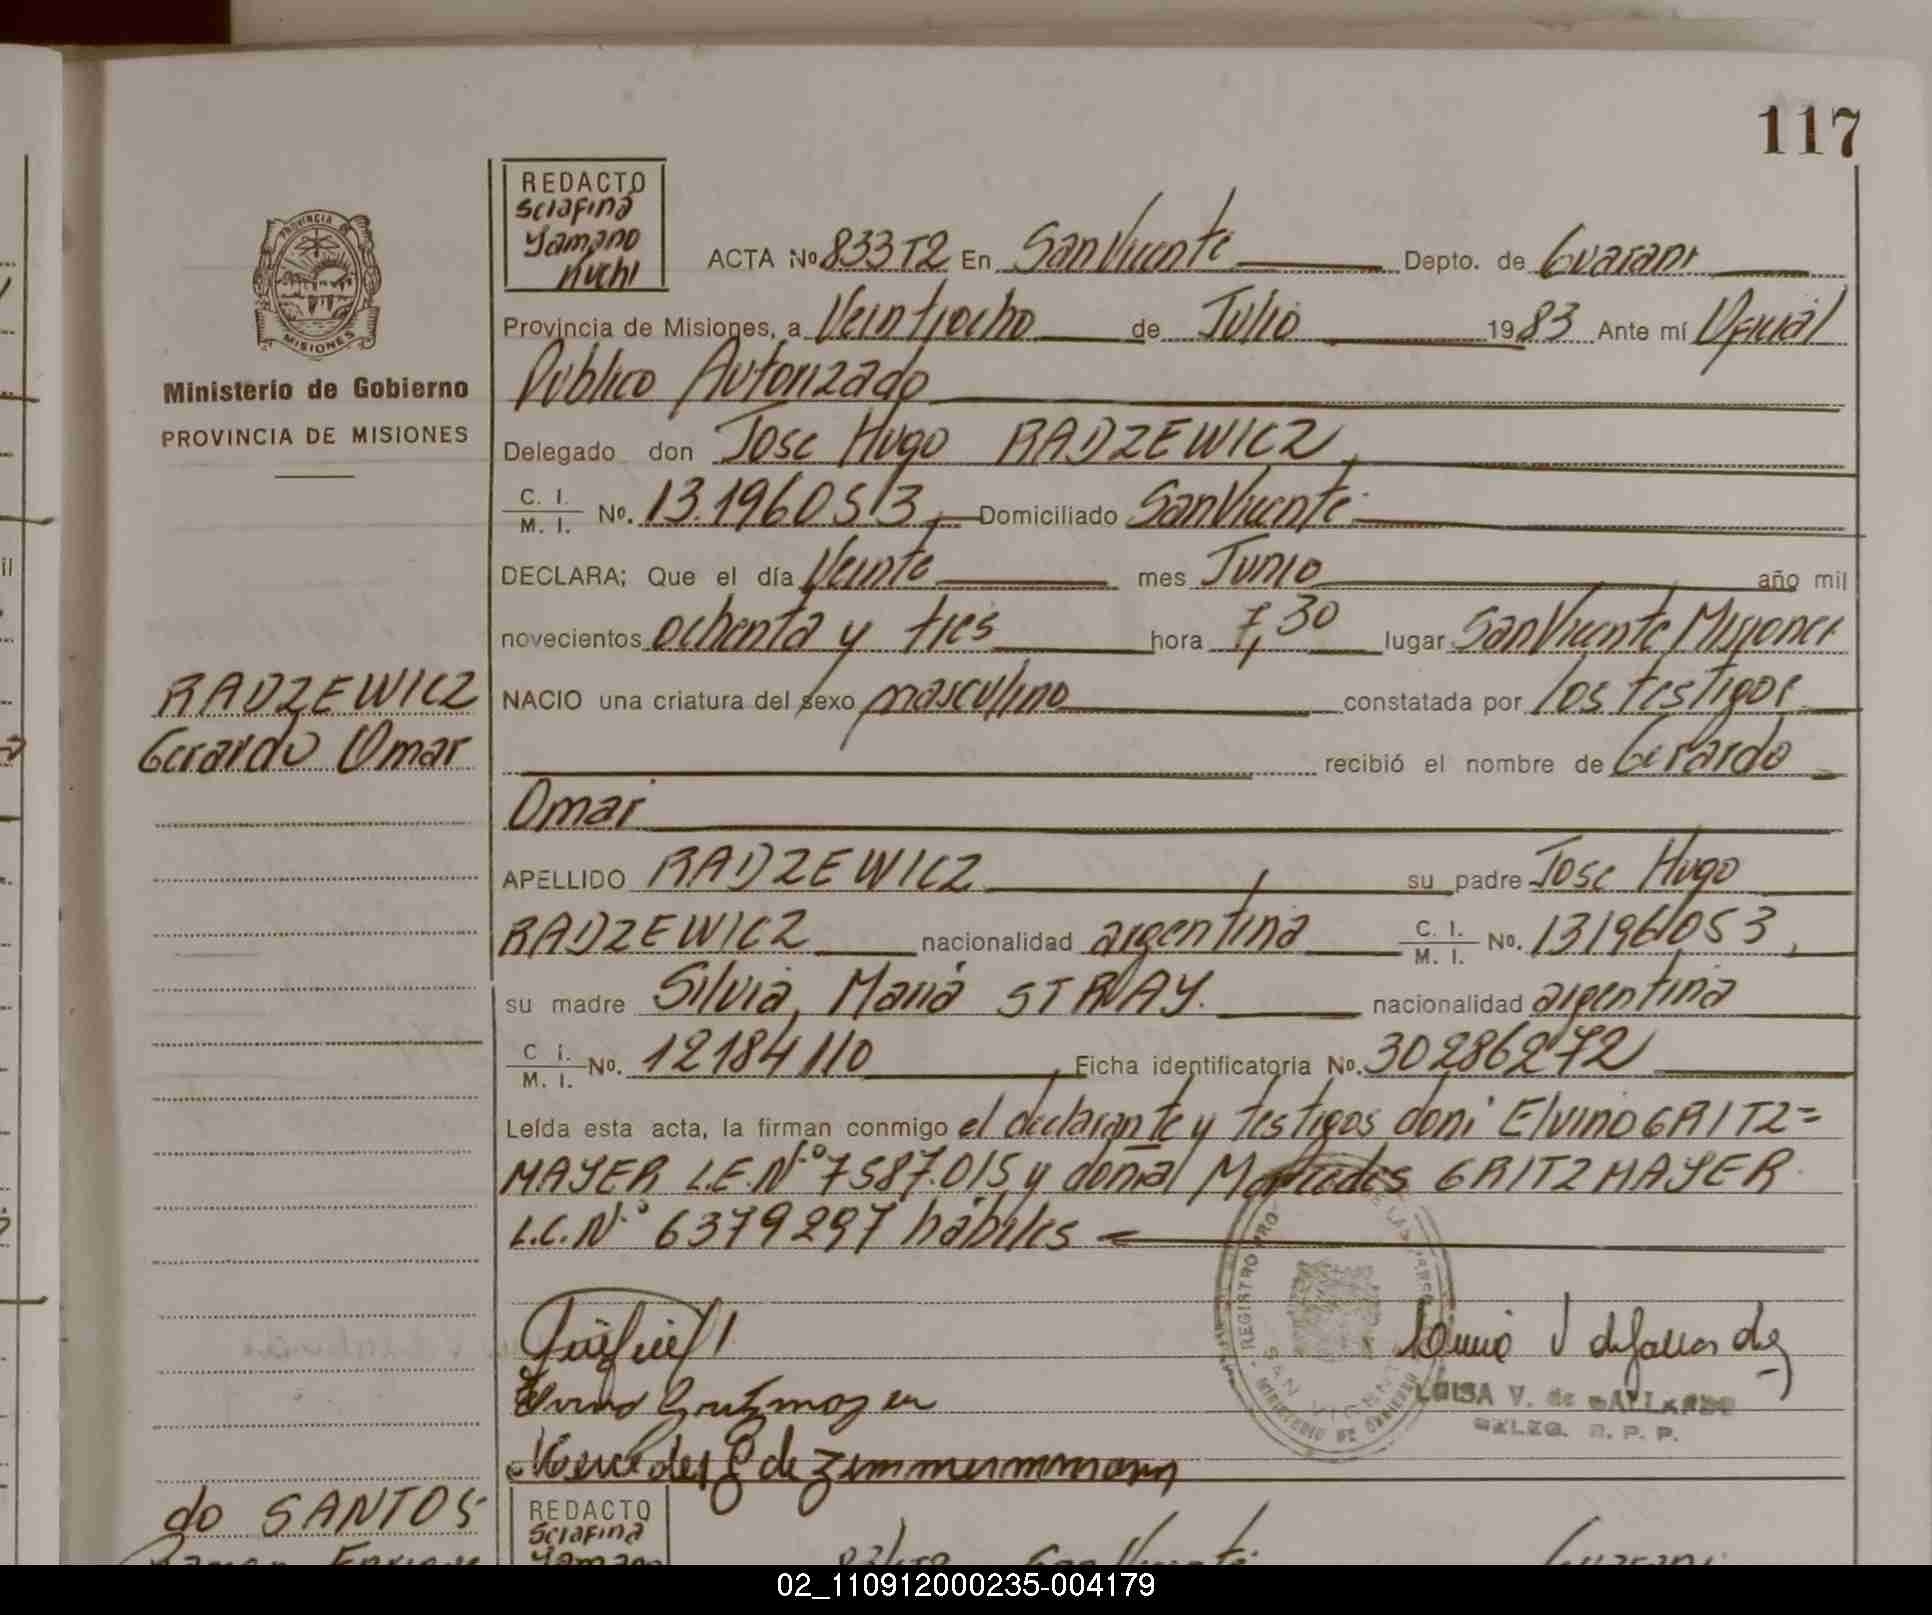 117
REDACTO
Serafina
Yamano
Kuchi
PROVINCIA DE
MISIONES
Ministerio de Gobierno
PROVINCIA DE MISIONES
RADZEWICZ
Gerardo Omar
ACTA Nº 833T2 En San Vicente Depto. de Guarani
Provincia de Misiones, a Veintiocho de Julio 1983 Ante mí Oficial
Publico Autorizado
Delegado don Jose Hugo RADZEWICZ,
C. I. / M. I. Nº. 13.196053, Domiciliado San Vicente
DECLARA; Que el día Veinte mes Junio año mil
novecientos ochenta y tres hora 7,30 lugar San Vicente Misiones
NACIO una criatura del sexo masculino constatada por los testigos
recibió el nombre de Gerardo
Omar
APELLIDO RADZEWICZ, su padre Jose Hugo
RADZEWICZ nacionalidad argentina C. I. / M. I. Nº. 13196053,
su madre Silvia, Maria STRAY. nacionalidad argentina
C. I. / M. I. Nº. 12184110 Ficha identificatoria Nº. 30286272
Leída esta acta, la firman conmigo el declarante y testigos don: Elvino GRITZ=
MAYER L.E.Nº 7587.015 y doña Mercedes GRITZMAYER
L.C.Nº 6379297 hábiles
Elvino Gritzmayer
Mercedes G de Zimmermmann
REGISTRO PRO
SAN VICENTE
MINISTERIO DE GOBIERNO
LUISA V. de GALLARDO
DELEG. R. P. P.
do SANTOS
Ramon Enrique
REDACTO
Serafina
Yamano
San Vicente Guarani
02_110912000235-004179